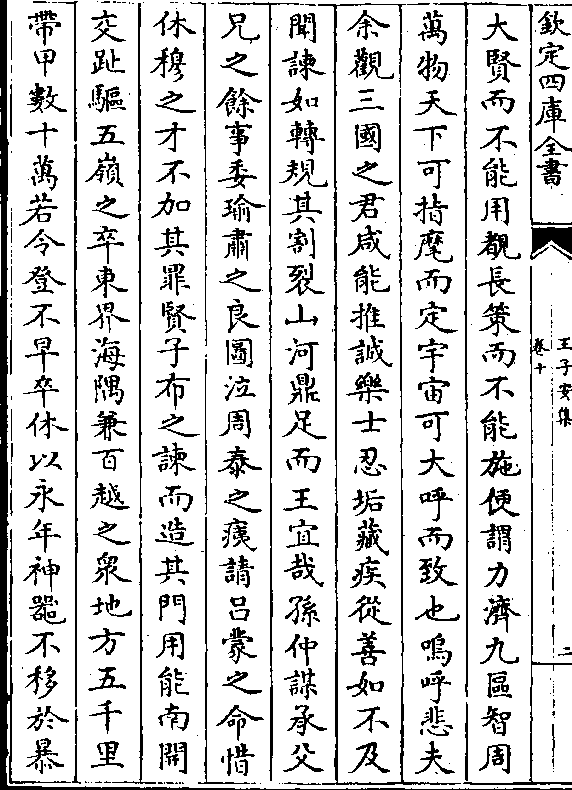 欽定四庫全書
王子安集
卷十
二
大賢而不能用覩長策而不能施使謂力濟九區智周
萬物天下可指麾而定宇宙可大呼而致也嗚呼悲夫
余觀三國之君咸能推誠樂士忍垢藏疾從善如不及
聞諫如轉規其割裂山河鼎足而王宜哉孫仲謀承父
兄之餘事委瑜肅之良圖泣周泰之痍請呂蒙之命惜
休穆之才不加其罪賢子布之諫而造其門用能南開
交趾驅五嶺之卒東界海隅兼百越之衆地方五千里
帶甲數十萬若令登不早卒休以永年神器不移於暴